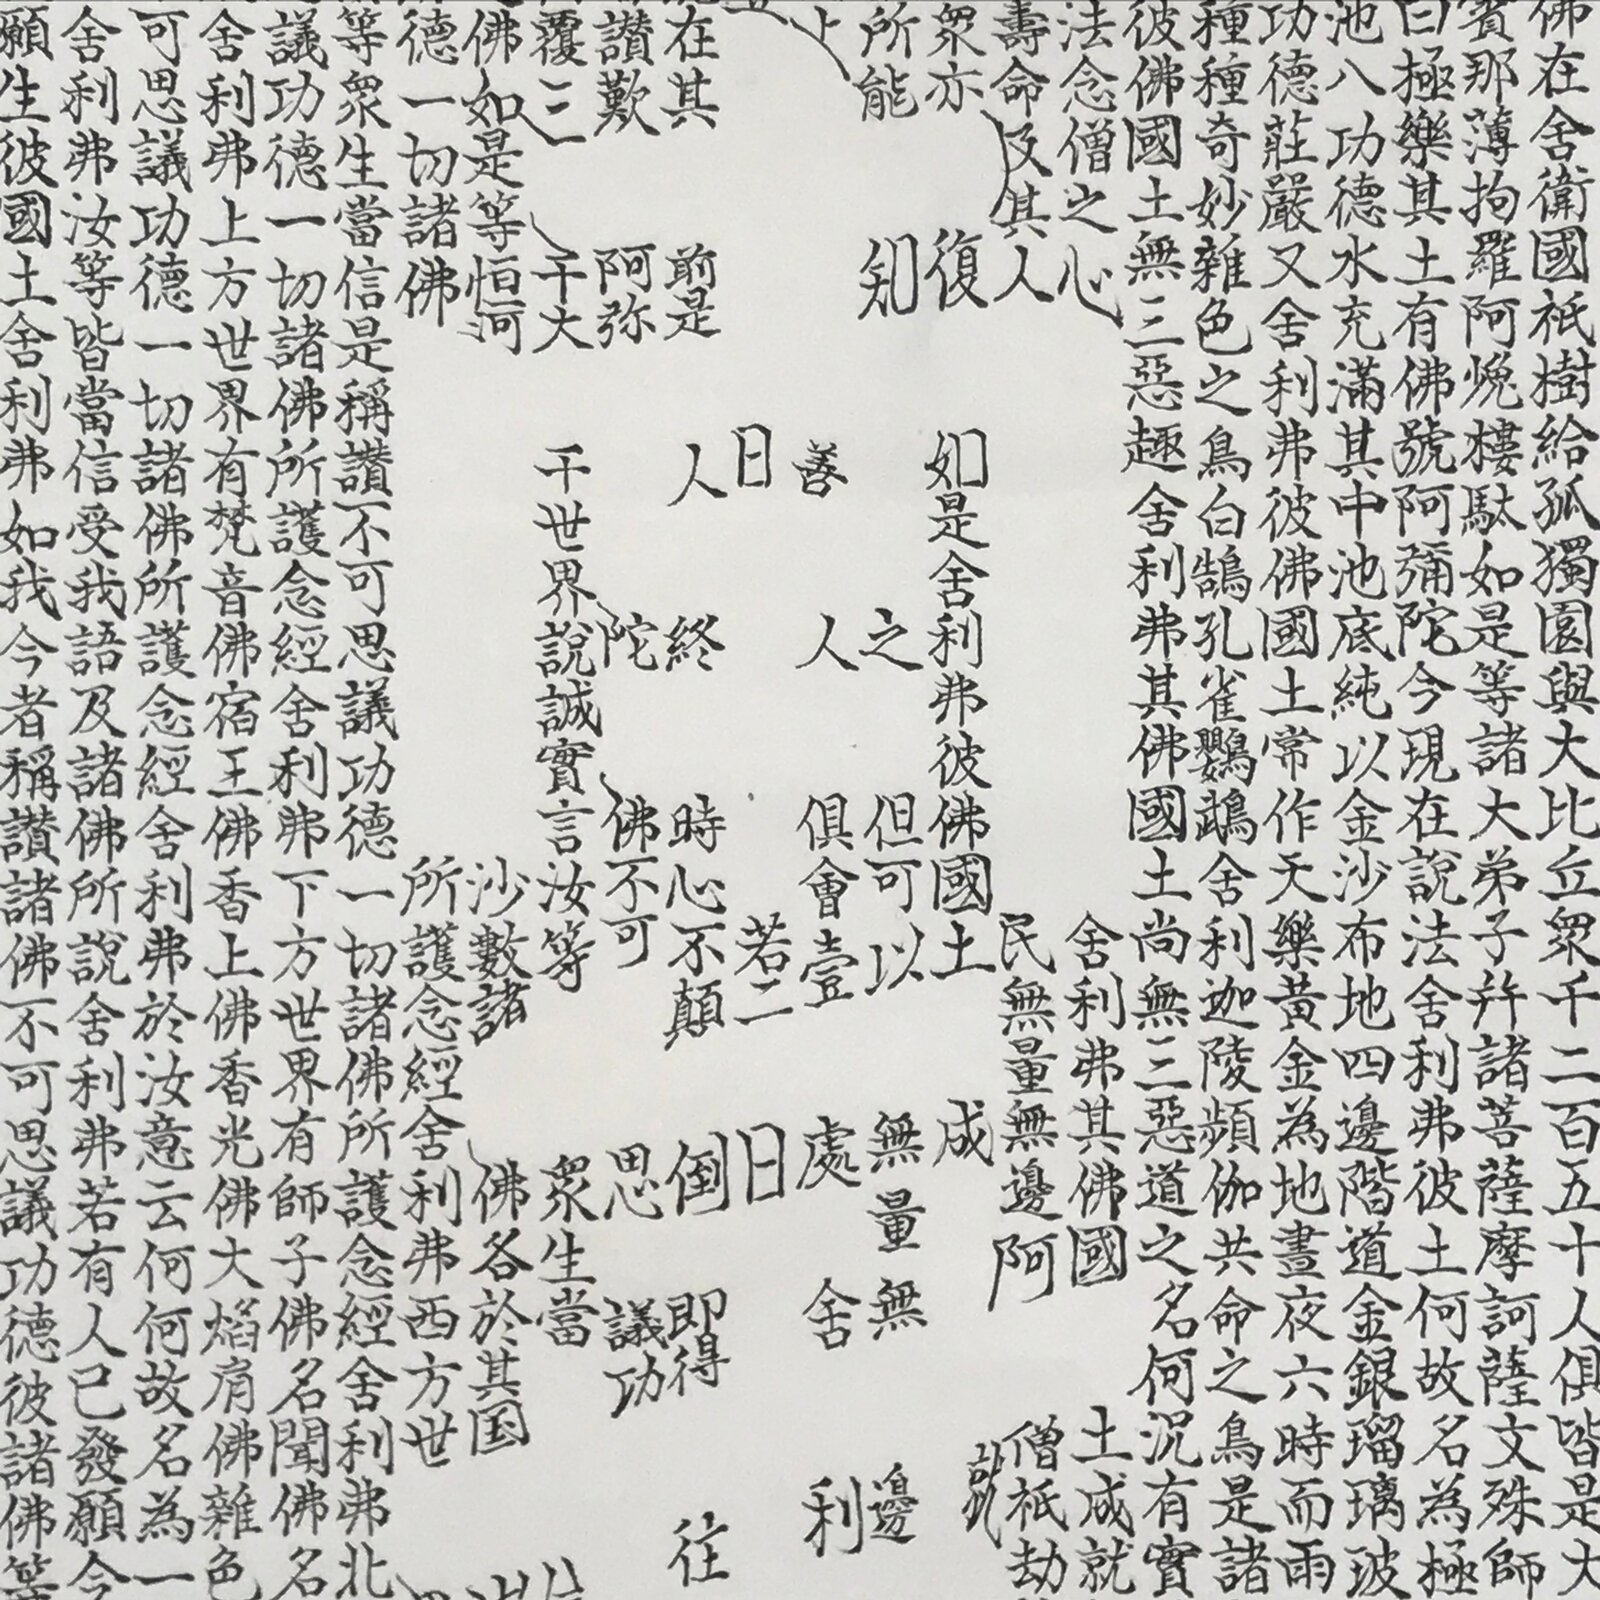 佛在舍衛國祇樹給孤獨園與大比丘眾千二百五十人俱皆是大
賓那薄拘羅阿㝹樓馱如是等諸大弟子并諸菩薩摩訶薩文殊師
曰極樂其土有佛號阿彌陀今現在說法舍利弗彼土何故名為極
池八功德水充滿其中池底純以金沙布地四邊階道金銀瑠璃玻
功德莊嚴又舍利弗彼佛國土常作天樂黃金為地晝夜六時而雨
種種奇妙雜色之鳥白鵠孔雀鸚鵡舍利迦陵頻伽共命之鳥是諸
彼佛國土無三惡趣舍利弗其佛國土尚無三惡道之名何況有實
法念僧之心舍利弗其佛國土成就
壽命及其人民無量無邊阿僧祇劫
眾亦復如是舍利弗彼佛國土成就
所能知之但可以無量無邊
上善人俱會壹處舍利
日若二日
在其前是人終時心不顛倒即得往
讚歎阿弥陀佛不可思議功
覆三千大千世界說誠實言汝等眾生當
佛如是等恒河沙數諸佛各於其国
德一切諸佛所護念經舍利弗西方世
等眾生當信是稱讚不可思議功德一切諸佛所護念經舍利弗北
議功德一切諸佛所護念經舍利弗下方世界有師子佛名聞佛名
舍利弗上方世界有梵音佛宿王佛香上佛香光佛大焰肩佛雜色
可思議功德一切諸佛所護念經舍利弗於汝意云何何故名為一
舍利弗汝等皆當信受我語及諸佛所說舍利弗若有人已發願今
願生彼國土舍利弗如我今者稱讚諸佛不可思議功德彼諸佛等